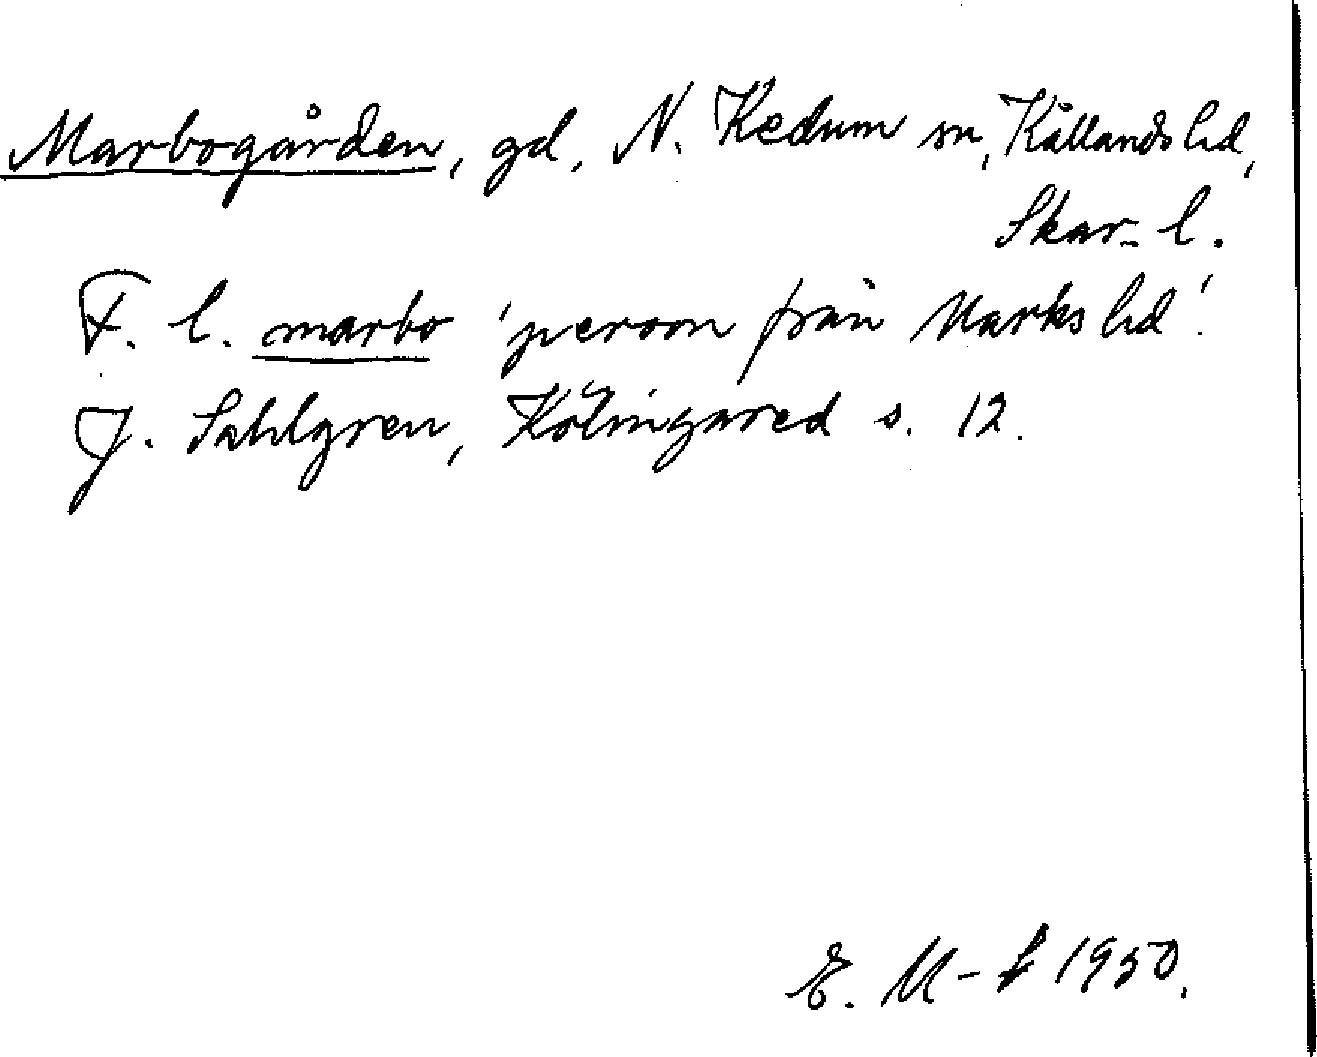 Marbogården, gd, N. Kedum sn, Kållands hd,
Skar. l.
F. l. marbo 'person från Marks hd'.
J. Sahlgren, Kölingared s. 12.
E. M-f 1950.